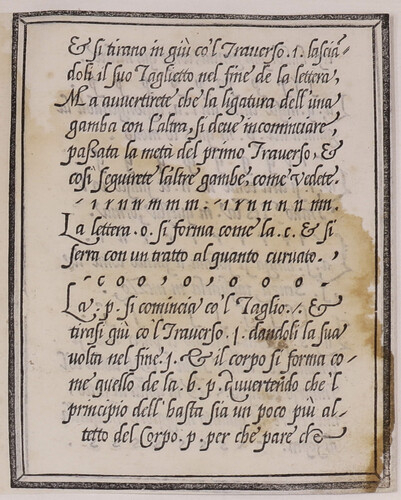 & si tirano in giù co'l Trauerso .1. lasciã-
doli il suo Taglietto nel fine de la lettera,
Ma auuertirete che la ligatura dell'una
gamba con l'altra, si deue incominciare,
passata la metà del primo Trauerso, &
cosi seguirete l'altre gambe, come vedete.
ı r n n m m m. ı r n n n n m.
La lettera .o. si forma come la .c. & si
serra con un tratto al quanto curuato.
c o o o , o o o o
La .p. si comincia co'l Taglio. & 
tirasi giù co'l Trauerso .ſ. dandoli la sua
volta nel fine .ſ. & il corpo si forma co-
me quello de la .b. p. Auuertendo che'l
principio dell'hasta sia un poco più al-
tetto del Corpo .p. per che pare ch